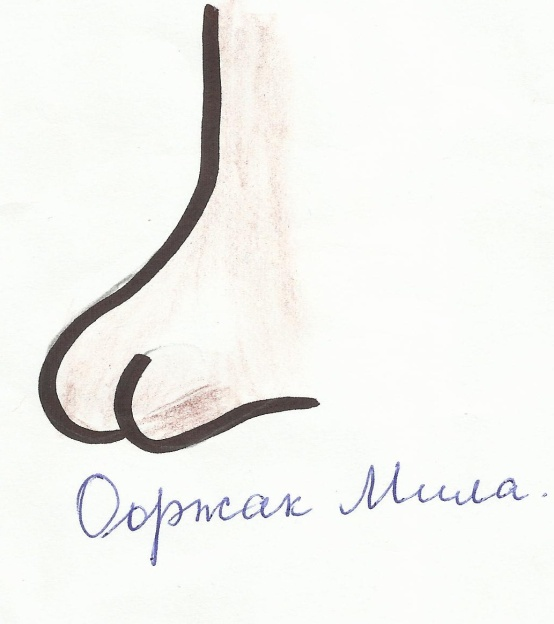 Ооржак Мила.